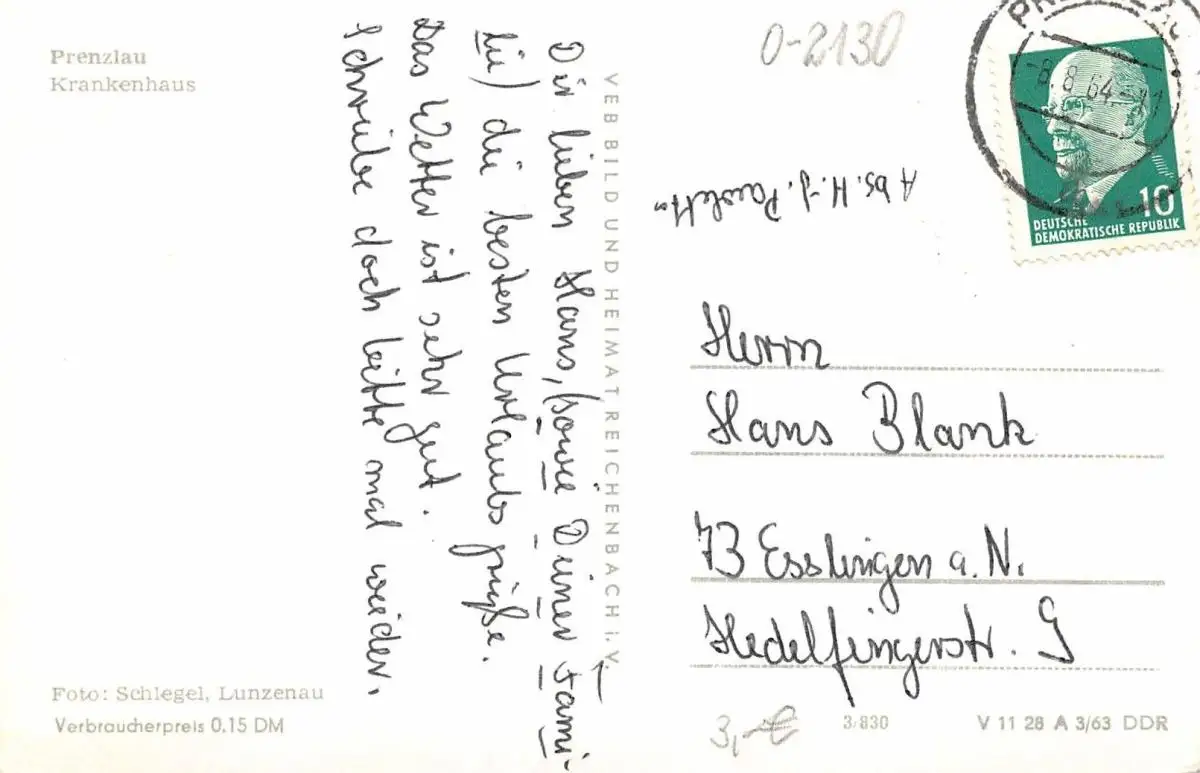 Prenzlau
Krankenhaus
Dir lieben Hans, (sowie Deiner Fami-
lie) die besten Urlaubsgrüße.
Das Wetter ist sehr gut.
Schreibe doch bitte mal wieder.
Foto: Schlegel, Lunzenau
Verbraucherpreis 0.15 DM
VEB BILD UND HEIMAT REICHENBACH i. V.
O-2130
8.8.64
10
DEUTSCHE
DEMOKRATISCHE REPUBLIK
Abs. H.-J.
Herrn
Hans Blank
73 Esslingen a. N.
Hedelfingerstr. 9
3,-€
3/830
V 11 28 A 3/63 DDR